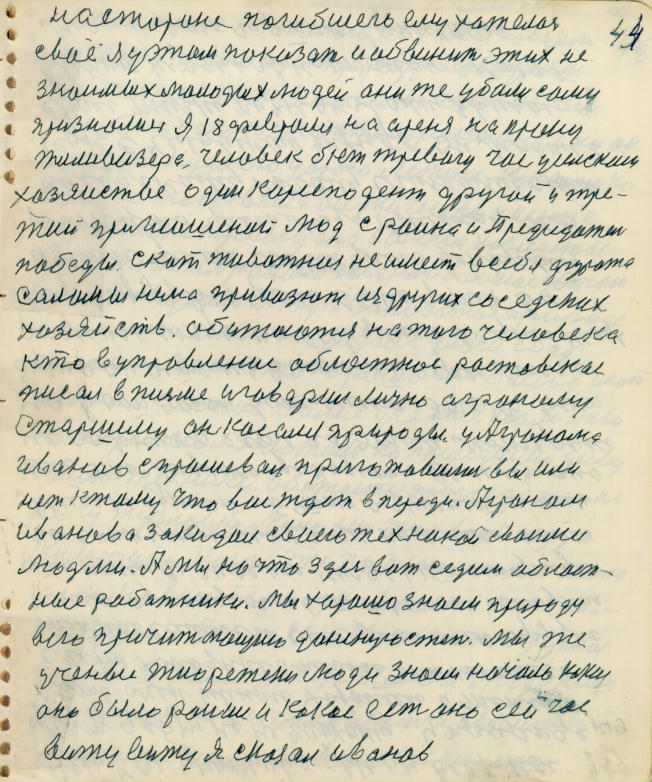 44
на стороне погибшего ему хателоя
своё я уэтом показат и обвинит этих не
знаимых молодых людей они же убили сами
признолися Я 18 февроля на арена на прону
человек бют тревогу час
хозяистве один кореподент другой и тре-
тий прииглошеной мод с раина и Предидатем
победы. Скот животная не имеит всебя фуража
саломы нема привозют из других соседских
хозяйств. обитаются на того человека
кто вуправление областное ростовское
писал вписме иговарил лично агроному
Старшему он касался природы. у Агронома
Иванов спрашевал приготовились вы или
нет ктому что вас ждет впереди. Агроном
Иванова закидал своего техникой своими
людми. А мы на что здес вот седим област-
ные работники. Мы харашо знаем природу
всю причитающию донскую степ. мы же
ученые тиоретени люди знаем начало каки
оно было рание и какое ест оно сейчас
вижу вижу Я сказал Иванов